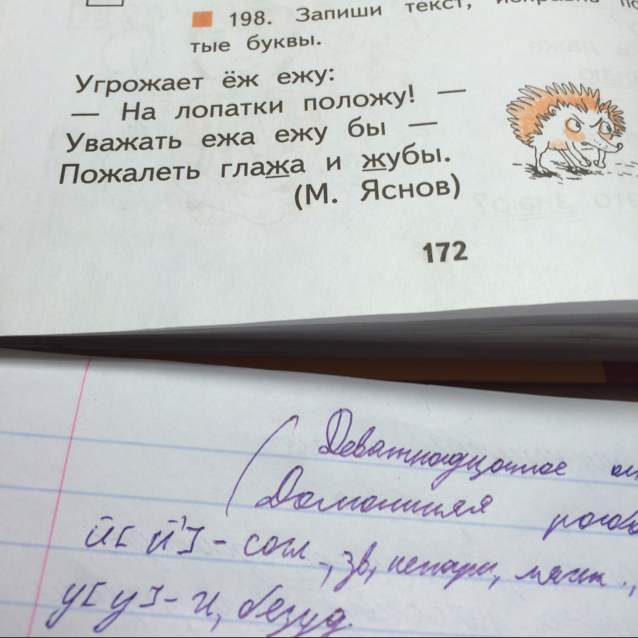 198. Запиши текст,
тые буквы.
Угрожает ёж ежу:
— На лопатки положу! —
Уважать ежа ежу бы —
Пожалеть глажа и жубы.
(М. Яснов)
172
Девятнадцатое
Домашняя
й[й'] - согл., зв, непарн, мягк.,
у[у] - г, безуд.